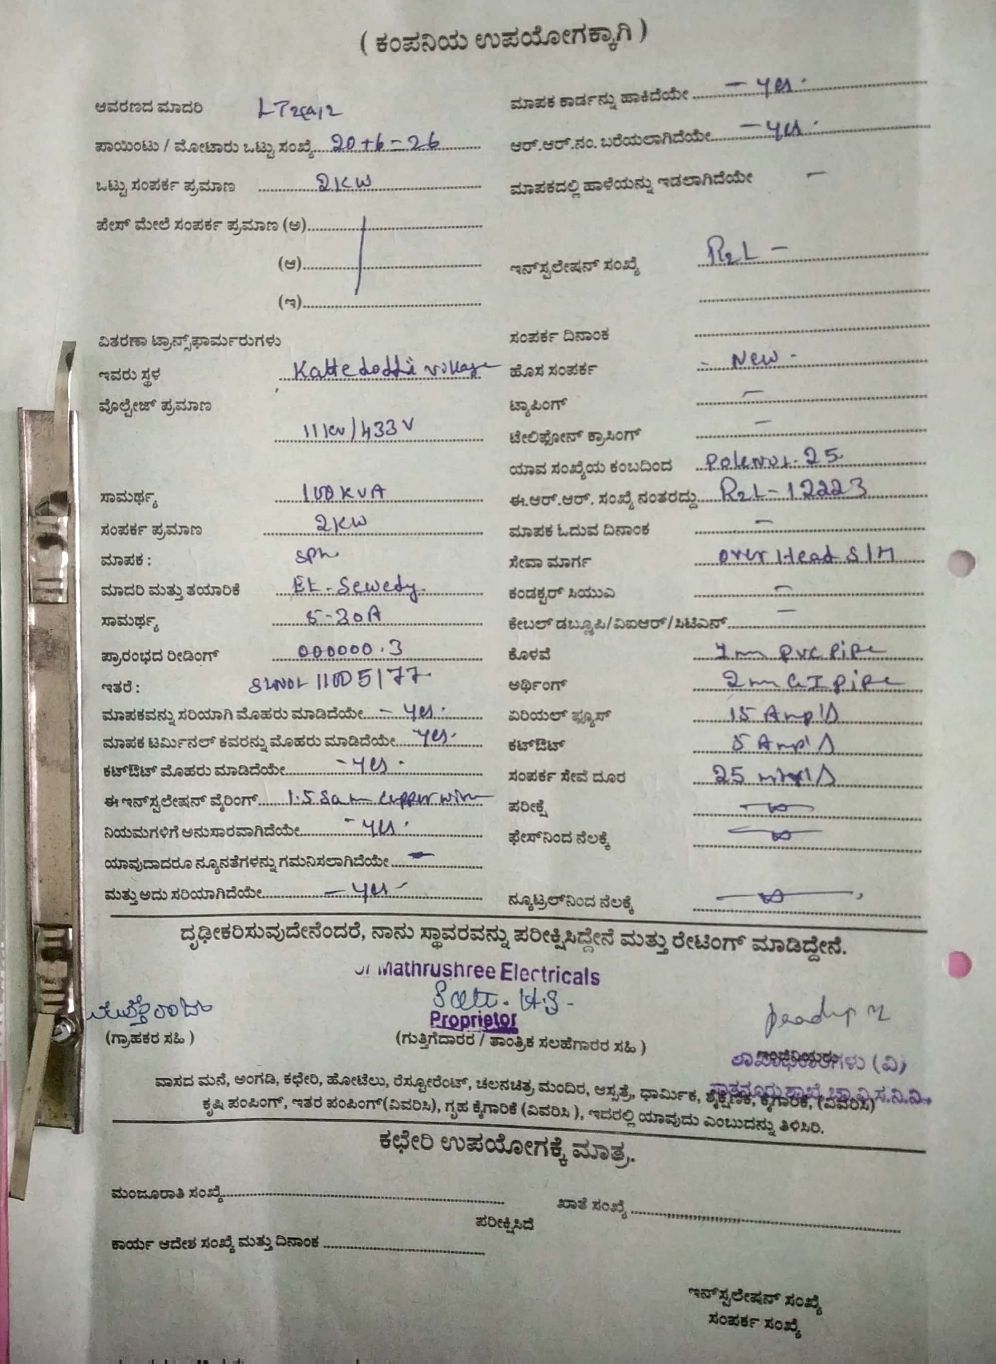 ( ಕಂಪನಿಯ ಉಪಯೋಗಕ್ಕಾಗಿ )
ಆವರಣದ ಮಾದರಿ LT2(a)2
ಪಾಯಿಂಟು / ಮೋಟಾರು ಒಟ್ಟು ಸಂಖ್ಯೆ 20+6-26
ಒಟ್ಟು ಸಂಪರ್ಕ ಪ್ರಮಾಣ 2KW
ಪೇಸ್ ಮೇಲೆ ಸಂಪರ್ಕ ಪ್ರಮಾಣ (ಅ)
(ಆ)
(ಇ)
ವಿತರಣಾ ಟ್ರಾನ್ಸ್‌ಫಾರ್ಮರುಗಳು
ಇವರು ಸ್ಥಳ Kattedoddi village
ವೋಲ್ಟೇಜ್ ಪ್ರಮಾಣ
11kv/433V
ಸಾಮರ್ಥ್ಯ 100KVA
ಸಂಪರ್ಕ ಪ್ರಮಾಣ 2KW
ಮಾಪಕ : SPh
ಮಾದರಿ ಮತ್ತು ತಯಾರಿಕೆ EL-Sewedy
ಸಾಮರ್ಥ್ಯ 5-30A
ಪ್ರಾರಂಭದ ರೀಡಿಂಗ್ 000000.3
ಇತರೆ : SLNO1-11005177
ಮಾಪಕವನ್ನು ಸರಿಯಾಗಿ ಮೊಹರು ಮಾಡಿದೆಯೇ - yes.
ಮಾಪಕ ಟರ್ಮಿನಲ್ ಕವರನ್ನು ಮೊಹರು ಮಾಡಿದೆಯೇ yes.
ಕಟ್‌ಔಟ್ ಮೊಹರು ಮಾಡಿದೆಯೇ - yes.
ಈ ಇನ್‌ಸ್ಟಲೇಷನ್ ವೈರಿಂಗ್ 1.5 Sqm Copper wire
ನಿಯಮಗಳಿಗೆ ಅನುಸಾರವಾಗಿದೆಯೇ - yes.
ಯಾವುದಾದರೂ ನ್ಯೂನತೆಗಳನ್ನು ಗಮನಿಸಲಾಗಿದೆಯೇ -
ಮತ್ತು ಅದು ಸರಿಯಾಗಿದೆಯೇ - yes -
ಮಾಪಕ ಕಾರ್ಡನ್ನು ಹಾಕಿದೆಯೇ - yes.
ಆರ್.ಆರ್.ನಂ. ಬರೆಯಲಾಗಿದೆಯೇ - yes.
ಮಾಪಕದಲ್ಲಿ ಹಾಳೆಯನ್ನು ಇಡಲಾಗಿದೆಯೇ -
ಇನ್‌ಸ್ಟಲೇಷನ್ ಸಂಖ್ಯೆ R2L -
ಸಂಪರ್ಕ ದಿನಾಂಕ
ಹೊಸ ಸಂಪರ್ಕ - New -
ಟ್ಯಾಪಿಂಗ್ -
ಟೇಲಿಫೋನ್ ಕ್ರಾಸಿಂಗ್ -
ಯಾವ ಸಂಖ್ಯೆಯ ಕಂಬದಿಂದ Pole No1-25
ಈ.ಆರ್.ಆರ್. ಸಂಖ್ಯೆ ನಂತರದ್ದು R2L-12223
ಮಾಪಕ ಓದುವ ದಿನಾಂಕ -
ಸೇವಾ ಮಾರ್ಗ over Head S/M
ಕಂಡಕ್ಟರ್ ಸಿಯುಎ -
ಕೇಬಲ್ ಡಬ್ಲೂಪಿ/ವಿಐಆರ್/ಸಿಟಿಎನ್ -
ಕೊಳವೆ 7mm PVC Pipe
ಅರ್ಥಿಂಗ್ 2mm GI Pipe
ಏರಿಯಲ್ ಫ್ಯೂಸ್ 15 Amp's
ಕಟ್‌ಔಟ್ 5 Amp's
ಸಂಪರ್ಕ ಸೇವೆ ದೂರ 25 mtr's
ಪರೀಕ್ಷೆ
ಫೇಸ್‌ನಿಂದ ನೆಲಕ್ಕೆ
ನ್ಯೂಟ್ರಲ್‌ನಿಂದ ನೆಲಕ್ಕೆ
ದೃಢೀಕರಿಸುವುದೇನೆಂದರೆ, ನಾನು ಸ್ಥಾವರವನ್ನು ಪರೀಕ್ಷಿಸಿದ್ದೇನೆ ಮತ್ತು ರೇಟಿಂಗ್ ಮಾಡಿದ್ದೇನೆ.
Mathrushree Electricals
Proprietor
(ಗ್ರಾಹಕರ ಸಹಿ )
(ಗುತ್ತಿಗೆದಾರರ / ತಾಂತ್ರಿಕ ಸಲಹೆಗಾರರ ಸಹಿ )
ಇಂಜಿನಿಯರು
ವಾಸದ ಮನೆ, ಅಂಗಡಿ, ಕಛೇರಿ, ಹೋಟೆಲು, ರೆಸ್ಟೋರೆಂಟ್, ಚಲನಚಿತ್ರ ಮಂದಿರ, ಆಸ್ಪತ್ರೆ, ಧಾರ್ಮಿಕ, ಶೈಕ್ಷಣಿಕ, ಕೈಗಾರಿಕೆ, (ವಿವರಿಸಿ)
ಕೃಷಿ ಪಂಪಿಂಗ್, ಇತರ ಪಂಪಿಂಗ್(ವಿವರಿಸಿ), ಗೃಹ ಕೈಗಾರಿಕೆ (ವಿವರಿಸಿ ), ಇದರಲ್ಲಿ ಯಾವುದು ಎಂಬುದನ್ನು ತಿಳಿಸಿರಿ.
ಕಛೇರಿ ಉಪಯೋಗಕ್ಕೆ ಮಾತ್ರ.
ಮಂಜೂರಾತಿ ಸಂಖ್ಯೆ
ಖಾತೆ ಸಂಖ್ಯೆ
ಪರೀಕ್ಷಿಸಿದೆ
ಕಾರ್ಯ ಆದೇಶ ಸಂಖ್ಯೆ ಮತ್ತು ದಿನಾಂಕ
ಇನ್‌ಸ್ಟಲೇಷನ್ ಸಂಖ್ಯೆ
ಸಂಪರ್ಕ ಸಂಖ್ಯೆ